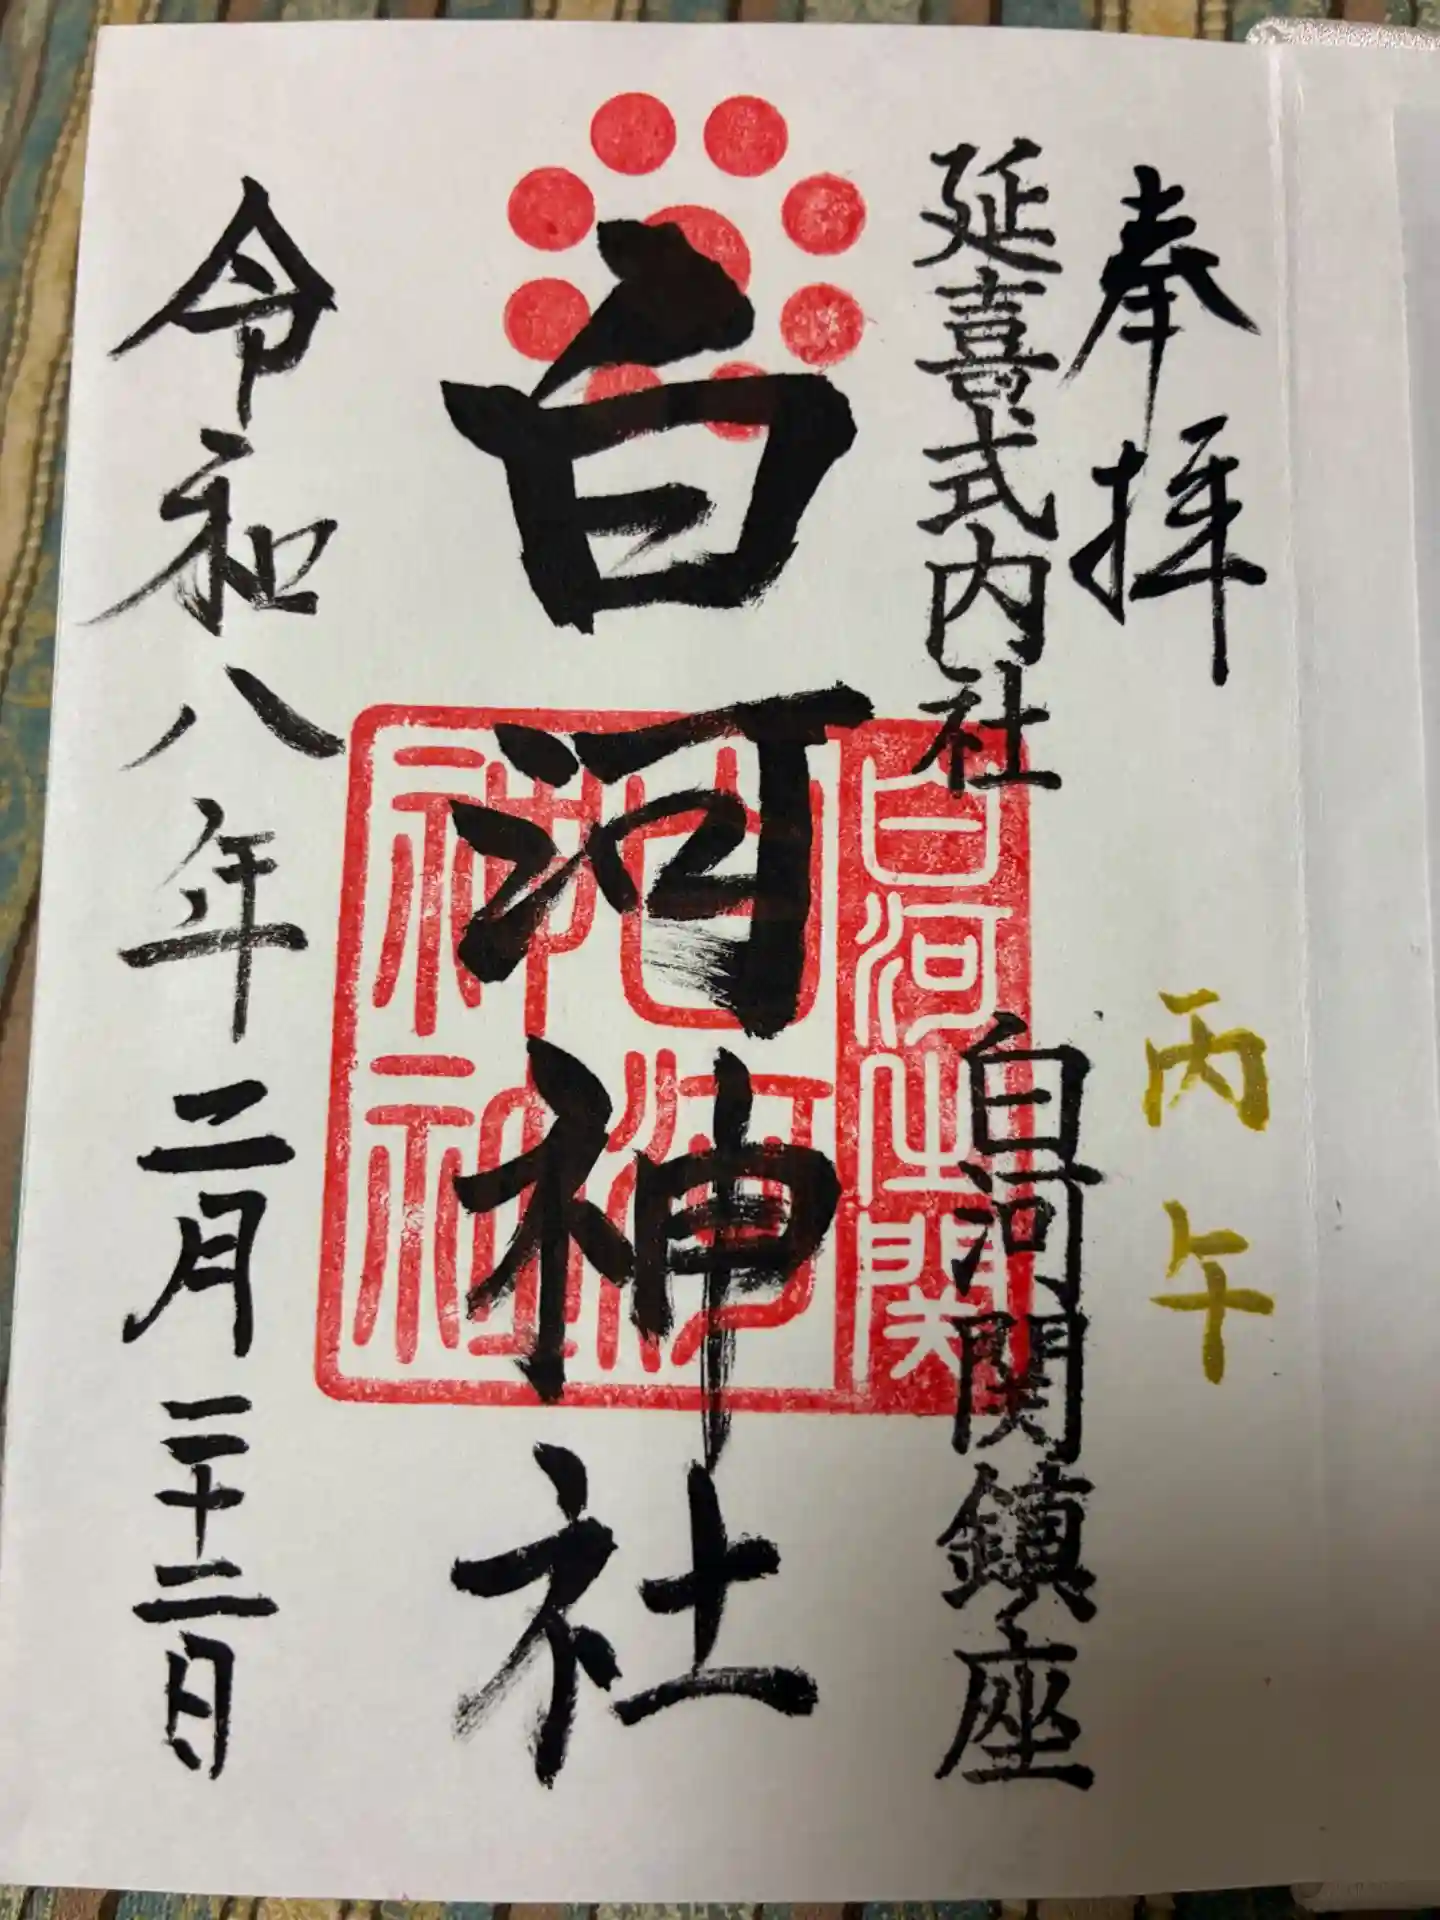 奉拝
丙午
延喜式内社
白河関鎮座
白河神社
白河神社
令和八年二月二十二日